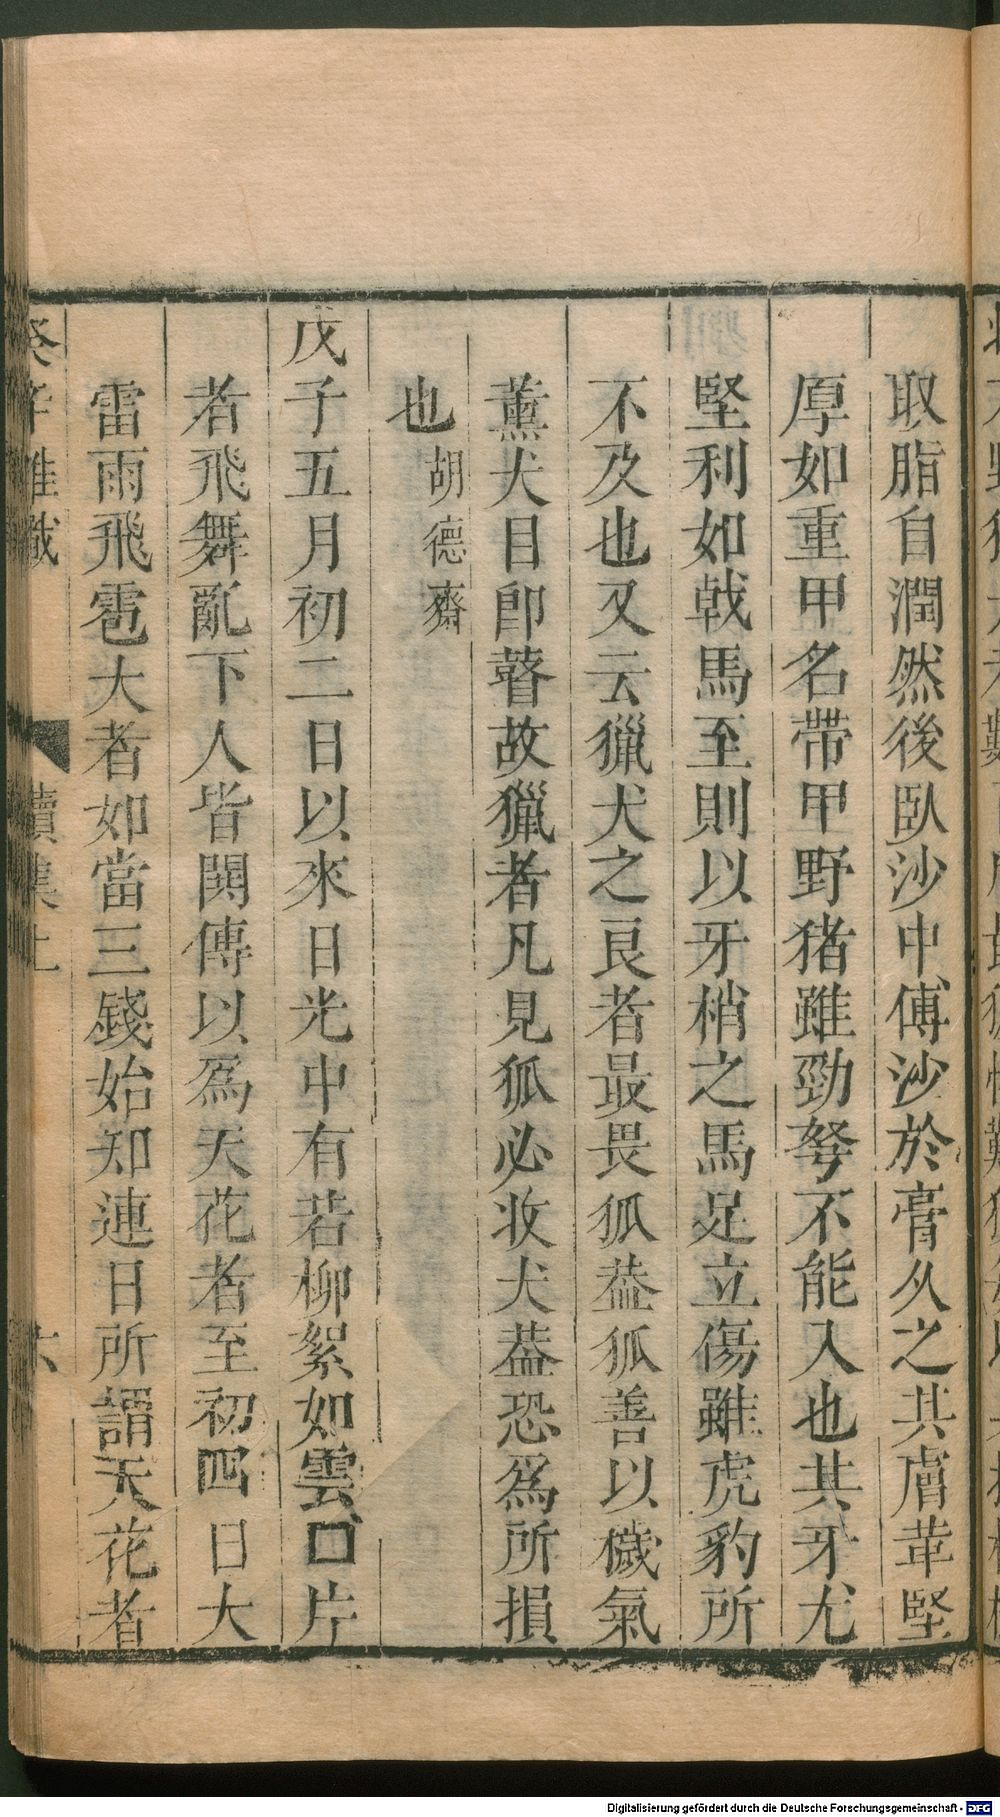 取脂自潤然後臥沙中傅沙於膏久之其膚革堅
厚如重甲名帶甲野猪雖勁弩不能入也其牙尤
堅利如戟馬至則以牙梢之馬足立傷雖虎豹所
不及也又云獵犬之良者最畏狐葢狐善以穢氣
薰犬目即瞽故獵者凡見狐必收犬葢恐爲所損
也胡德齋
戊子五月初二日以來日光中有若柳絮如雲口片
者飛舞亂下人皆閧傳以爲天花者至初四日大
雷雨飛雹大者如當三錢始知連日所謂天花者
癸辛雜識 續集上 六
Digitalisierung gefördert durch die Deutsche Forschungsgemeinschaft - DFG